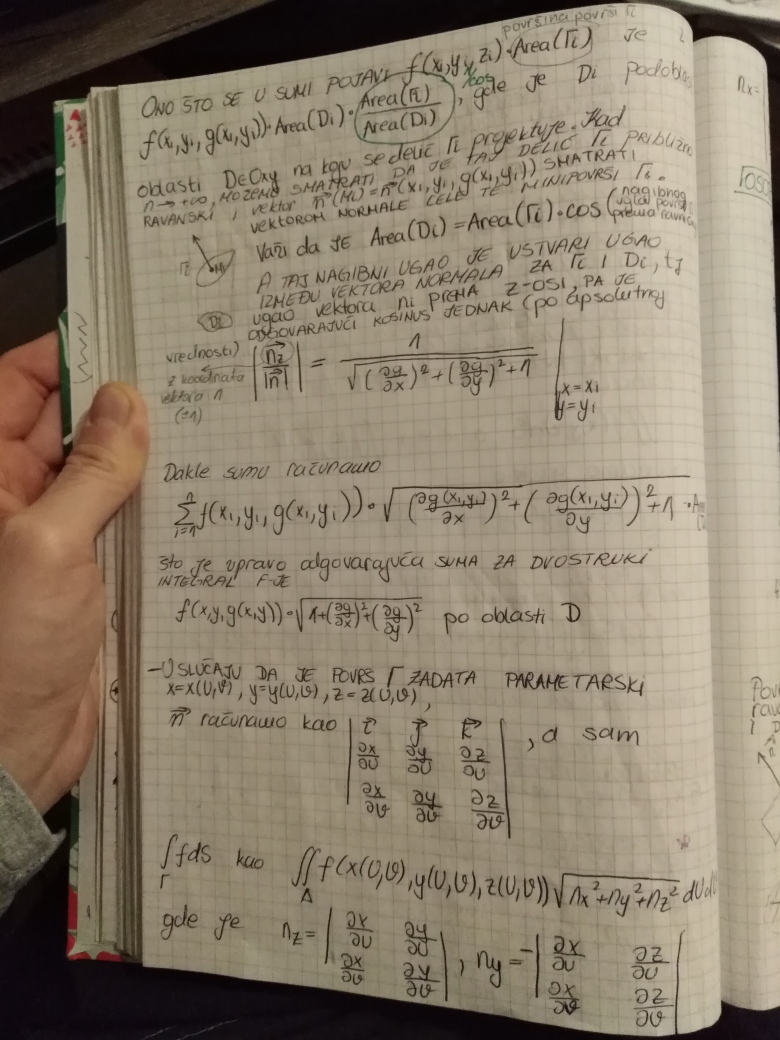 površina površi Γi
ONO ŠTO SE U SUMI POJAVI f(xi, yi, zi)·Area(Γi) JE
f(xi, yi, g(xi, yi))·Area(Di)·Area(Γi)/Area(Di), gde je Di podoblas
cos
oblasti D∈Oxy na koju se delić Γi projektuje. Kad
n→+∞, MOŽEMO SMATRATI DA JE TAJ DELIĆ Γi PRIBLIŽNO
RAVANSKI I vektor n⃗(Mi)=n⃗(xi, yi, g(xi, yi)) SMATRATI
VEKTOROM NORMALE CELE TE MINIPOVRŠI Γi.
Važi da JE Area(Di)=Area(Γi)·cos(nagibnog ugla površi prema ravni
Γi Mi
A TAJ NAGIBNI UGAO JE USTVARI UGAO
IZMEĐU VEKTORA NORMALA ZA Γi I Di, tj
Di
ugao vektora ni PREMA Z-OSI, PA JE
ODGOVARAJUĆI KOSINUS JEDNAK (po apsolutnoj
vrednosti) |n⃗z/|n⃗|| = 1/√((∂g/∂x)²+(∂g/∂y)²+1) | x=xi y=yi
z koordinata
vektora n
(=1)
Dakle sumu računamo
∑ i=1 n f(xi, yi, g(xi, yi))·√((∂g(xi,yi)/∂x)²+(∂g(xi,yi)/∂y)²+1 ·A
što je upravo odgovarajuća SUMA ZA DVOSTRUKI
INTEGRAL F-JE
f(x,y,g(x,y))·√1+(∂g/∂x)²+(∂g/∂y)² po oblasti D
-U SLUČAJU DA JE POVRŠ Γ ZADATA PARAMETARSKI
x=x(U,ϑ), y=y(U,ϑ), z=z(U,ϑ),
n⃗ računamo kao | i⃗ j⃗ k⃗ | , a sam
∂x/∂U ∂y/∂U ∂z/∂U
∂x/∂ϑ ∂y/∂ϑ ∂z/∂ϑ
∫Γ fdS kao ∬Δ f(x(U,ϑ), y(U,ϑ), z(U,ϑ))√nx²+ny²+nz² dUd
gde je nz= | ∂x/∂U ∂y/∂U | , ny=-| ∂x/∂U ∂z/∂U |
∂x/∂ϑ ∂y/∂ϑ ∂x/∂ϑ ∂z/∂ϑ
nx=